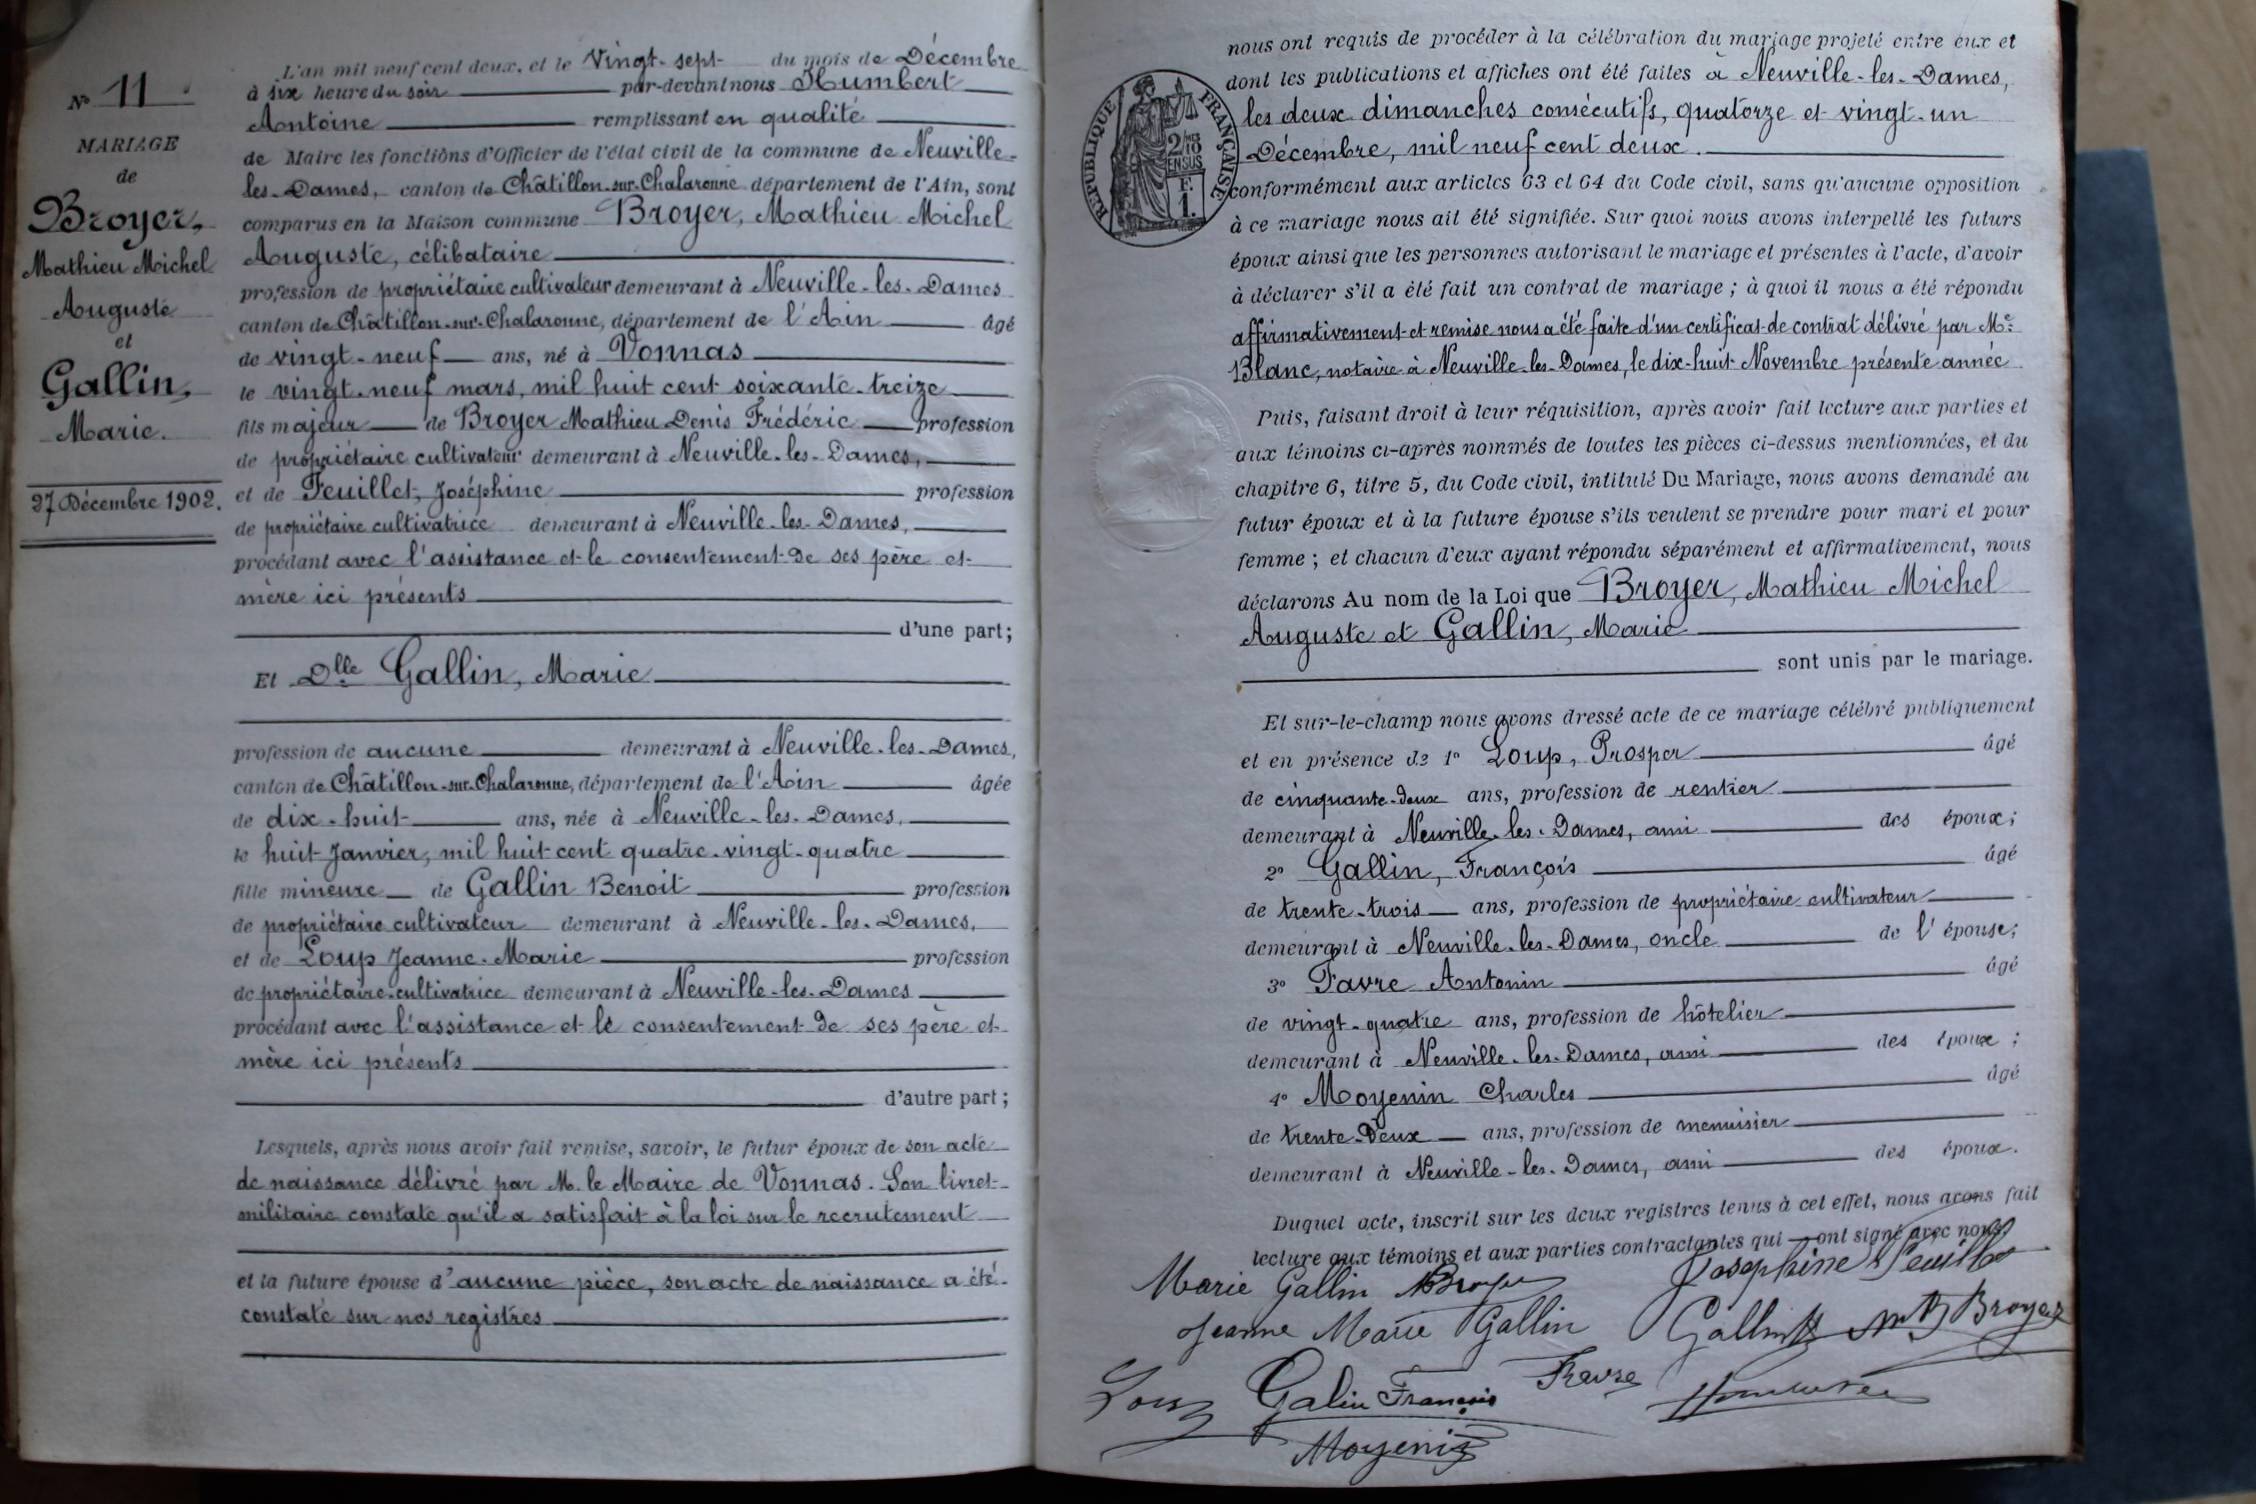 N° 11
MARIAGE
de
Broyer,
Mathieu Michel
Auguste
et
Gallin,
Marie.
27 Décembre 1902.
L'an mil neuf cent deux, et le Vingt-sept du mois de Décembre
à six heure du soir par-devant nous Humbert
Antoine remplissant en qualité
de Maire les fonctions d'Officier de l'état civil de la commune de Neuville-
les-Dames, canton de Châtillon-sur-Chalaronne département de l'Ain, sont
comparus en la Maison commune Broyer, Mathieu Michel
Auguste, célibataire
profession de propriétaire cultivateur demeurant à Neuville-les-Dames
canton de Châtillon-sur-Chalaronne, département de l'Ain âgé
de vingt-neuf ans, né à Vonnas
le vingt-neuf mars, mil huit cent soixante-treize
fils majeur de Broyer Mathieu Denis Frédéric profession
de propriétaire cultivateur demeurant à Neuville-les-Dames,
et de Feuillet, Joséphine profession
de propriétaire cultivatrice demeurant à Neuville-les-Dames,
procédant avec l'assistance et le consentement de ses père et
mère ici présents
d'une part;
Et Dlle Gallin, Marie
profession de aucune demeurant à Neuville-les-Dames,
canton de Châtillon-sur-Chalaronne, département de l'Ain âgée
de dix-huit ans, née à Neuville-les-Dames,
le huit Janvier, mil huit cent quatre-vingt-quatre
fille mineure de Gallin Benoit profession
de propriétaire cultivateur demeurant à Neuville-les-Dames,
et de Loup Jeanne-Marie profession
de propriétaire-cultivatrice demeurant à Neuville-les-Dames
procédant avec l'assistance et le consentement de ses père et
mère ici présents
d'autre part;
Lesquels, après nous avoir fait remise, savoir, le futur époux de son acte
de naissance délivré par M. le Maire de Vonnas. Son livret
militaire constate qu'il a satisfait à la loi sur le recrutement
et la future épouse d'aucune pièce, son acte de naissance a été
constaté sur nos registres
RÉPUBLIQUE FRANÇAISE
2/10
EN SUS
F.
1.
nous ont requis de procéder à la célébration du mariage projeté entre eux et
dont les publications et affiches ont été faites à Neuville-les-Dames,
les deux dimanches consécutifs, quatorze et vingt-un
Décembre, mil neuf cent deux.
conformément aux articles 63 et 64 du Code civil, sans qu'aucune opposition
à ce mariage nous ait été signifiée. Sur quoi nous avons interpellé les futurs
époux ainsi que les personnes autorisant le mariage et présentes à l'acte, d'avoir
à déclarer s'il a été fait un contrat de mariage ; à quoi il nous a été répondu
affirmativement et remise nous a été faite d'un certificat de contrat délivré par Me
Blanc, notaire à Neuville-les-Dames, le dix-huit Novembre présente année
Puis, faisant droit à leur réquisition, après avoir fait lecture aux parties et
aux témoins ci-après nommés de toutes les pièces ci-dessus mentionnées, et du
chapitre 6, titre 5, du Code civil, intitulé Du Mariage, nous avons demandé au
futur époux et à la future épouse s'ils veulent se prendre pour mari et pour
femme ; et chacun d'eux ayant répondu séparément et affirmativement, nous
déclarons Au nom de la Loi que Broyer, Mathieu Michel
Auguste et Gallin, Marie
sont unis par le mariage.
Et sur-le-champ nous avons dressé acte de ce mariage célébré publiquement
et en présence de 1° Loup, Prosper âgé
de cinquante-deux ans, profession de rentier
demeurant à Neuville-les-Dames, ami des époux;
2° Gallin, François âgé
de trente-trois ans, profession de propriétaire cultivateur
demeurant à Neuville-les-Dames, oncle de l'épouse;
3° Favre Antonin âgé
de vingt-quatre ans, profession de hôtelier
demeurant à Neuville-les-Dames, ami des époux ;
4° Moyenin Charles âgé
de trente-deux ans, profession de menuisier
demeurant à Neuville-les-Dames, ami des époux.
Duquel acte, inscrit sur les deux registres tenus à cet effet, nous avons fait
lecture aux témoins et aux parties contractantes qui ont signé avec nous
Marie Gallin Broyer Josephine Feuillet
Jeanne Marie Gallin Gallin Broyer
Loup Galin François Favre
Moyenin